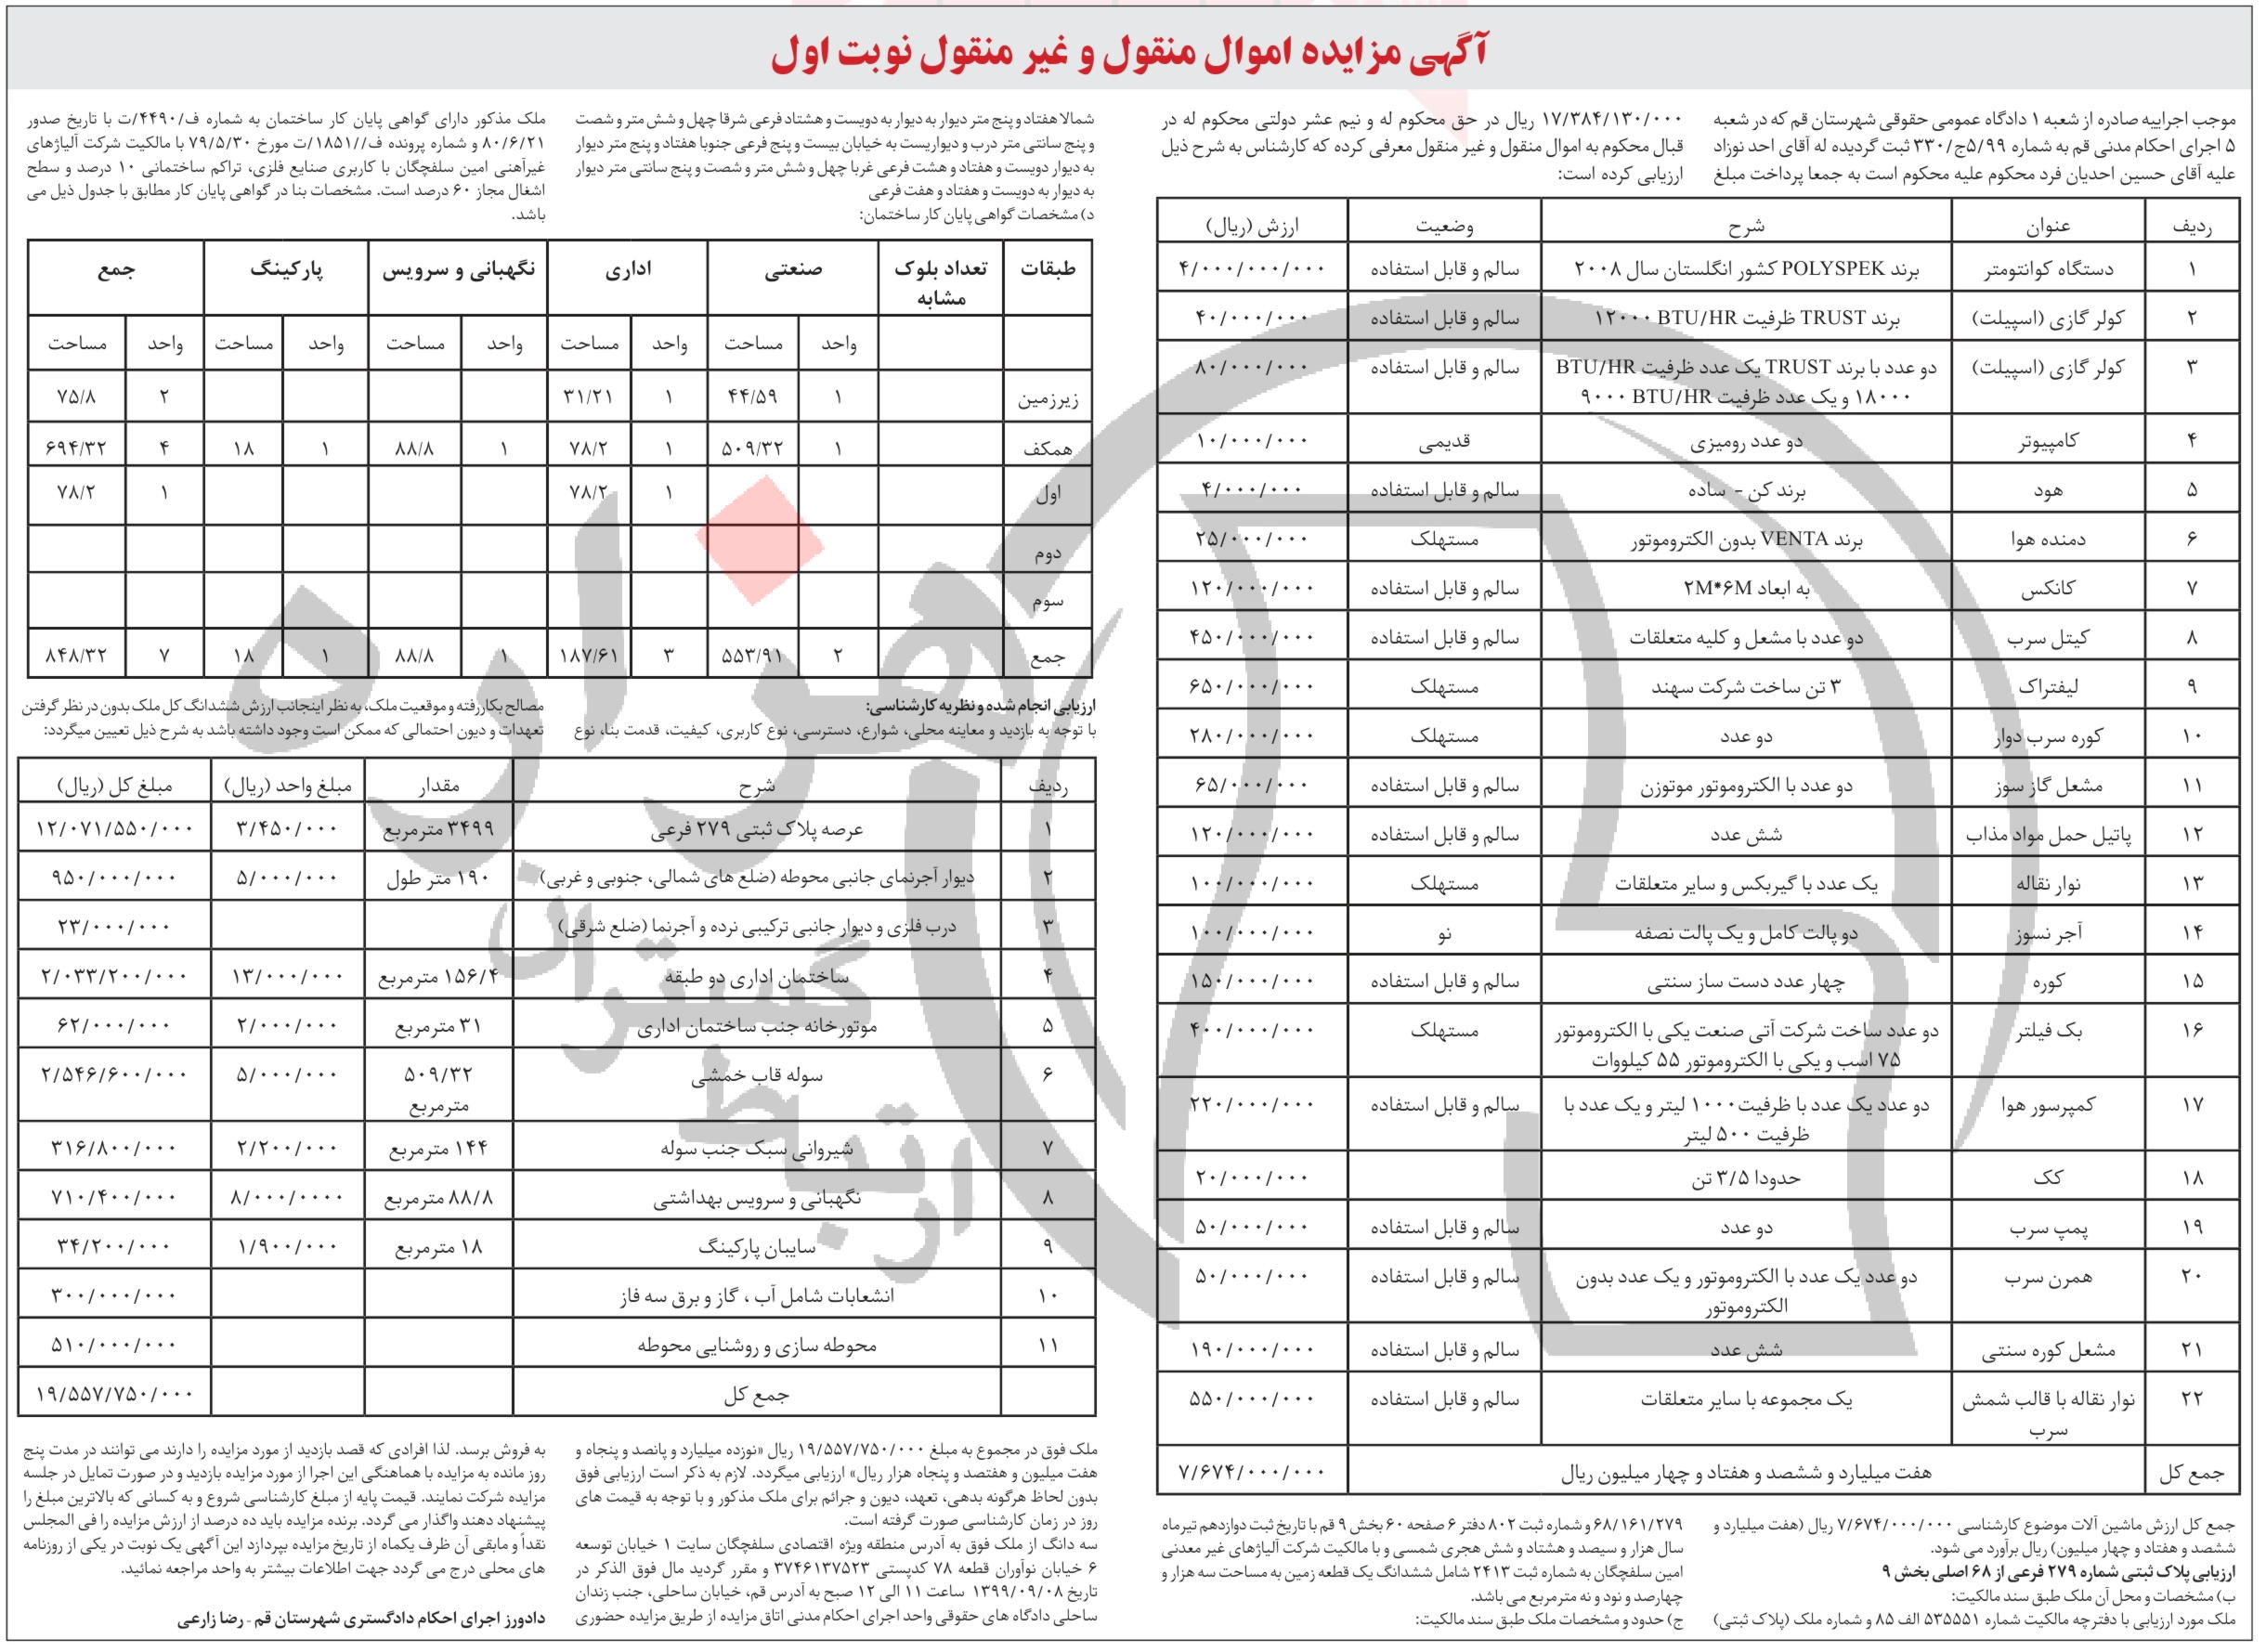 آگهی مزایده اموال منقول و غیر منقول نوبت اول
موجب اجراییه صادره از شعبه ۱ دادگاه عمومی حقوقی شهرستان قم که در شعبه
۵ اجرای احکام مدنی قم به شماره ۵/۹۹ج/۳۳۰ ثبت گردیده له آقای احد نوزاد
علیه آقای حسین احدیان فرد محکوم علیه محکوم است به جمعا پرداخت مبلغ
۱۷/۳۸۴/۱۳۰/۰۰۰ ریال در حق محکوم له و نیم عشر دولتی محکوم له در
قبال محکوم به اموال منقول و غیر منقول معرفی کرده که کارشناس به شرح ذیل
ارزیابی کرده است:
ردیف عنوان شرح وضعیت ارزش (ریال)
۱ دستگاه کوانتومتر برند POLYSPEK کشور انگلستان سال ۲۰۰۸ سالم و قابل استفاده ۴/۰۰۰/۰۰۰/۰۰۰
۲ کولر گازی (اسپیلت) برند TRUST ظرفیت ۱۲۰۰۰ BTU/HR سالم و قابل استفاده ۴۰/۰۰۰/۰۰۰
۳ کولر گازی (اسپیلت) دو عدد با برند TRUST یک عدد ظرفیت BTU/HR سالم و قابل استفاده ۸۰/۰۰۰/۰۰۰
۱۸۰۰۰ و یک عدد ظرفیت ۹۰۰۰ BTU/HR
۴ کامپیوتر دو عدد رومیزی قدیمی ۱۰/۰۰۰/۰۰۰
۵ هود برند کن - ساده سالم و قابل استفاده ۴/۰۰۰/۰۰۰
۶ دمنده هوا برند VENTA بدون الکتروموتور مستهلک ۲۵/۰۰۰/۰۰۰
۷ کانکس به ابعاد ۲M*۶M سالم و قابل استفاده ۱۲۰/۰۰۰/۰۰۰
۸ کیتل سرب دو عدد با مشعل و کلیه متعلقات سالم و قابل استفاده ۴۵۰/۰۰۰/۰۰۰
۹ لیفتراک ۳ تن ساخت شرکت سهند مستهلک ۶۵۰/۰۰۰/۰۰۰
۱۰ کوره سرب دوار دو عدد مستهلک ۲۸۰/۰۰۰/۰۰۰
۱۱ مشعل گاز سوز دو عدد با الکتروموتور موتوزن سالم و قابل استفاده ۶۵/۰۰۰/۰۰۰
۱۲ پاتیل حمل مواد مذاب شش عدد سالم و قابل استفاده ۱۲۰/۰۰۰/۰۰۰
۱۳ نوار نقاله یک عدد با گیربکس و سایر متعلقات مستهلک ۱۰۰/۰۰۰/۰۰۰
۱۴ آجر نسوز دو پالت کامل و یک پالت نصفه نو ۱۰۰/۰۰۰/۰۰۰
۱۵ کوره چهار عدد دست ساز سنتی سالم و قابل استفاده ۱۵۰/۰۰۰/۰۰۰
۱۶ بک فیلتر دو عدد ساخت شرکت آتی صنعت یکی با الکتروموتور مستهلک ۴۰۰/۰۰۰/۰۰۰
۷۵ اسب و یکی با الکتروموتور ۵۵ کیلووات
۱۷ کمپرسور هوا دو عدد یک عدد با ظرفیت۱۰۰۰ لیتر و یک عدد با سالم و قابل استفاده ۲۲۰/۰۰۰/۰۰۰
ظرفیت ۵۰۰ لیتر
۱۸ کک حدودا ۳/۵ تن ۲۰/۰۰۰/۰۰۰
۱۹ پمپ سرب دو عدد سالم و قابل استفاده ۵۰/۰۰۰/۰۰۰
۲۰ همزن سرب دو عدد یک عدد با الکتروموتور و یک عدد بدون سالم و قابل استفاده ۵۰/۰۰۰/۰۰۰
الکتروموتور
۲۱ مشعل کوره سنتی شش عدد سالم و قابل استفاده ۱۹۰/۰۰۰/۰۰۰
۲۲ نوار نقاله با قالب شمش یک مجموعه با سایر متعلقات سالم و قابل استفاده ۵۵۰/۰۰۰/۰۰۰
سرب
جمع کل هفت میلیارد و ششصد و هفتاد و چهار میلیون ریال ۷/۶۷۴/۰۰۰/۰۰۰
جمع کل ارزش ماشین آلات موضوع کارشناسی ۷/۶۷۴/۰۰۰/۰۰۰ ریال (هفت میلیارد و
ششصد و هفتاد و چهار میلیون) ریال برآورد می شود.
ارزیابی پلاک ثبتی شماره ۲۷۹ فرعی از ۶۸ اصلی بخش ۹
ب) مشخصات و محل آن ملک طبق سند مالکیت:
ملک مورد ارزیابی با دفترچه مالکیت شماره ۵۳۵۵۵۱ الف ۸۵ و شماره ملک (پلاک ثبتی)
۶۸/۱۶۱/۲۷۹ و شماره ثبت ۸۰۲ دفتر ۶ صفحه ۶۰ بخش ۹ قم با تاریخ ثبت دوازدهم تیرماه
سال هزار و سیصد و هشتاد و شش هجری شمسی و با مالکیت شرکت آلیاژهای غیر معدنی
امین سلفچگان به شماره ثبت ۲۴۱۳ شامل ششدانگ یک قطعه زمین به مساحت سه هزار و
چهارصد و نود و نه مترمربع می باشد.
ج) حدود و مشخصات ملک طبق سند مالکیت:
شمالا هفتاد و پنج متر دیوار به دیوار به دویست و هشتاد فرعی شرقا چهل و شش متر و شصت
و پنج سانتی متر درب و دیواریست به خیابان بیست و پنج فرعی جنوبا هفتاد و پنج متر دیوار
به دیوار دویست و هفتاد و هشت فرعی غربا چهل و شش متر و شصت و پنج سانتی متر دیوار
به دیوار به دویست و هفتاد و هفت فرعی
د) مشخصات گواهی پایان کار ساختمان:
ملک مذکور دارای گواهی پایان کار ساختمان به شماره ف/۴۴۹۰/ت با تاریخ صدور
۸۰/۶/۲۱ و شماره پرونده ف//۱۸۵۱/ت مورخ ۷۹/۵/۳۰ با مالکیت شرکت آلیاژهای
غیرآهنی امین سلفچگان با کاربری صنایع فلزی، تراکم ساختمانی ۱۰ درصد و سطح
اشغال مجاز ۶۰ درصد است. مشخصات بنا در گواهی پایان کار مطابق با جدول ذیل می
باشد.
طبقات تعداد بلوک صنعتی اداری نگهبانی و سرویس پارکینگ جمع
مشابه
واحد مساحت واحد مساحت واحد مساحت واحد مساحت واحد مساحت
زیرزمین ۱ ۴۴/۵۹ ۱ ۳۱/۲۱ ۲ ۷۵/۸
همکف ۱ ۵۰۹/۳۲ ۱ ۷۸/۲ ۱ ۸۸/۸ ۱ ۱۸ ۴ ۶۹۴/۳۲
اول ۱ ۷۸/۲ ۱ ۷۸/۲
دوم
سوم
جمع ۲ ۵۵۳/۹۱ ۳ ۱۸۷/۶۱ ۱ ۸۸/۸ ۱ ۱۸ ۷ ۸۴۸/۳۲
ارزیابی انجام شده و نظریه کارشناسی:
با توجه به بازدید و معاینه محلی، شوارع، دسترسی، نوع کاربری، کیفیت، قدمت بنا، نوع
مصالح بکاررفته و موقعیت ملک، به نظر اینجانب ارزش ششدانگ کل ملک بدون در نظر گرفتن
تعهدات و دیون احتمالی که ممکن است وجود داشته باشد به شرح ذیل تعیین میگردد:
ردیف شرح مقدار مبلغ واحد (ریال) مبلغ کل (ریال)
۱ عرصه پلاک ثبتی ۲۷۹ فرعی ۳۴۹۹ مترمربع ۳/۴۵۰/۰۰۰ ۱۲/۰۷۱/۵۵۰/۰۰۰
۲ دیوار آجرنمای جانبی محوطه (ضلع های شمالی، جنوبی و غربی) ۱۹۰ متر طول ۵/۰۰۰/۰۰۰ ۹۵۰/۰۰۰/۰۰۰
۳ درب فلزی و دیوار جانبی ترکیبی نرده و آجرنما (ضلع شرقی) ۲۳/۰۰۰/۰۰۰
۴ ساختمان اداری دو طبقه ۱۵۶/۴ مترمربع ۱۳/۰۰۰/۰۰۰ ۲/۰۳۳/۲۰۰/۰۰۰
۵ موتورخانه جنب ساختمان اداری ۳۱ مترمربع ۲/۰۰۰/۰۰۰ ۶۲/۰۰۰/۰۰۰
۶ سوله قاب خمشی ۵۰۹/۳۲ ۵/۰۰۰/۰۰۰ ۲/۵۴۶/۶۰۰/۰۰۰
مترمربع
۷ شیروانی سبک جنب سوله ۱۴۴ مترمربع ۲/۲۰۰/۰۰۰ ۳۱۶/۸۰۰/۰۰۰
۸ نگهبانی و سرویس بهداشتی ۸۸/۸ مترمربع ۸/۰۰۰/۰۰۰۰ ۷۱۰/۴۰۰/۰۰۰
۹ سایبان پارکینگ ۱۸ مترمربع ۱/۹۰۰/۰۰۰ ۳۴/۲۰۰/۰۰۰
۱۰ انشعابات شامل آب ، گاز و برق سه فاز ۳۰۰/۰۰۰/۰۰۰
۱۱ محوطه سازی و روشنایی محوطه ۵۱۰/۰۰۰/۰۰۰
جمع کل ۱۹/۵۵۷/۷۵۰/۰۰۰
ملک فوق در مجموع به مبلغ ۱۹/۵۵۷/۷۵۰/۰۰۰ ریال «نوزده میلیارد و پانصد و پنجاه و
هفت میلیون و هفتصد و پنجاه هزار ریال» ارزیابی میگردد. لازم به ذکر است ارزیابی فوق
بدون لحاظ هرگونه بدهی، تعهد، دیون و جرائم برای ملک مذکور و با توجه به قیمت های
روز در زمان کارشناسی صورت گرفته است.
سه دانگ از ملک فوق به آدرس منطقه ویژه اقتصادی سلفچگان سایت ۱ خیابان توسعه
۶ خیابان نوآوران قطعه ۷۸ کدپستی ۳۷۴۶۱۳۷۵۲۳ و مقرر گردید مال فوق الذکر در
تاریخ ۱۳۹۹/۰۹/۰۸ ساعت ۱۱ الی ۱۲ صبح به آدرس قم، خیابان ساحلی، جنب زندان
ساحلی دادگاه های حقوقی واحد اجرای احکام مدنی اتاق مزایده از طریق مزایده حضوری
به فروش برسد. لذا افرادی که قصد بازدید از مورد مزایده را دارند می توانند در مدت پنج
روز مانده به مزایده با هماهنگی این اجرا از مورد مزایده بازدید و در صورت تمایل در جلسه
مزایده شرکت نمایند. قیمت پایه از مبلغ کارشناسی شروع و به کسانی که بالاترین مبلغ را
پیشنهاد دهند واگذار می گردد. برنده مزایده باید ده درصد از ارزش مزایده را فی المجلس
نقداً و مابقی آن ظرف یکماه از تاریخ مزایده بپردازد این آگهی یک نوبت در یکی از روزنامه
های محلی درج می گردد جهت اطلاعات بیشتر به واحد مراجعه نمائید.
دادورز اجرای احکام دادگستری شهرستان قم - رضا زارعی
هزاره
گستران
ارتباط